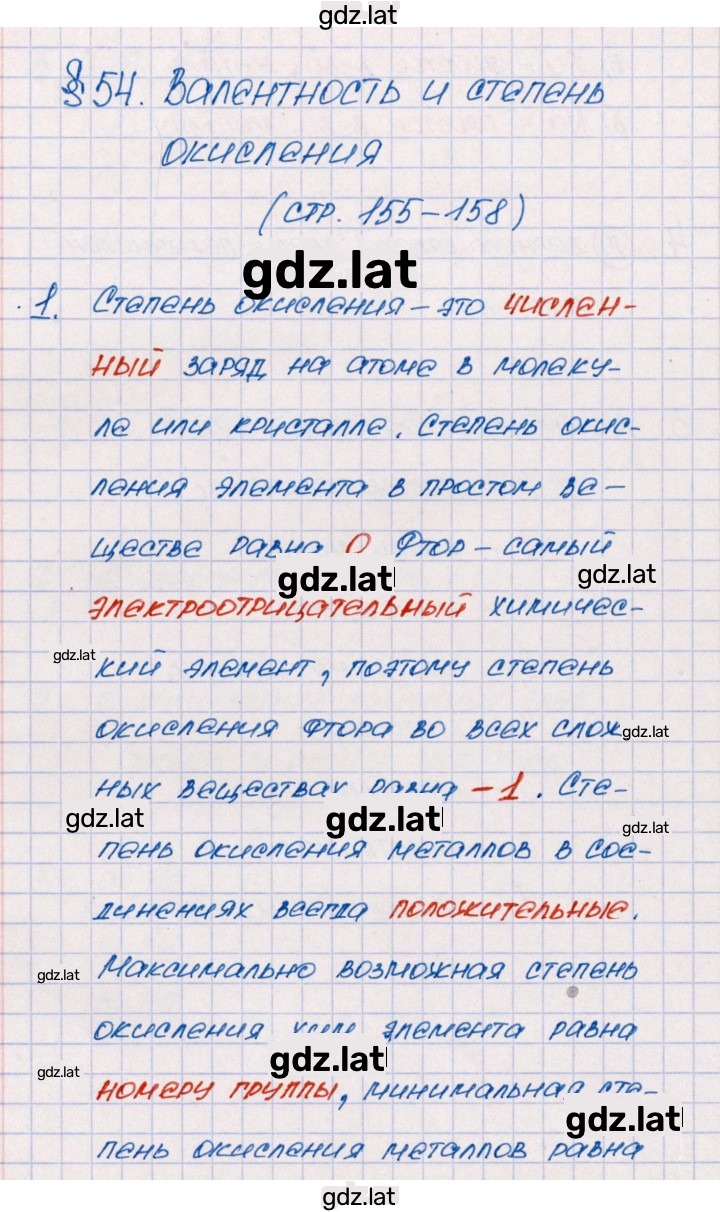 gdz.lat
§ 54. Валентность и степень
окисления
(стр. 155-158)
gdz.lat
1. Степень окисления - это числен-
ный заряд на атоме в молеку-
ле или кристалле. Степень окис-
ления элемента в простом ве-
ществе равна 0 Фтор - самый
gdz.lat
gdz.lat
электроотрицательный химичес-
gdz.lat
кий элемент, поэтому степень
окисления фтора во всех слож
gdz.lat
ных веществах равна -1. Сте-
gdz.lat
gdz.lat
gdz.lat
пень окисления металлов в сое-
динениях всегда положительные.
Максимально возможная степень
gdz.lat
окисления элемента равна
gdz.lat
gdz.lat
номеру группы, минимальная сте-
gdz.lat
пень окисления металлов равна
gdz.lat